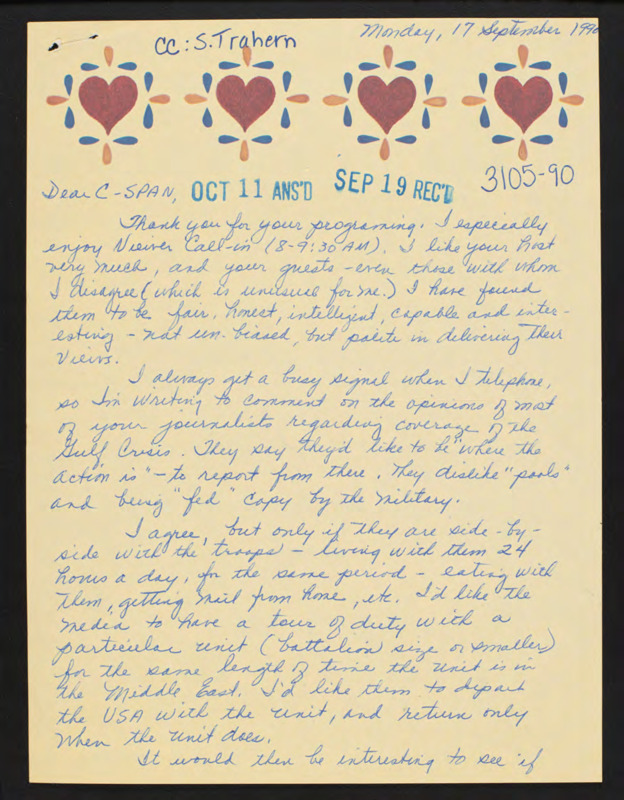 CC: S. Trahern
Monday, 17 September 1990
Dear C-SPAN,
OCT 11 ANS'D
SEP 19 REC'D
3105-90
Thank you for your programing. I especially
enjoy Viewer Call-in (8-9:30 AM). I like your host
very much, and your guests - even those with whom
I disagree (which is unusual for me.) I have found
them to be fair, honest, intelligent, capable and inter-
esting - not un-biased, but polite in delivering their
views.
I always get a busy signal when I telephone,
so I'm writing to comment on the opinions of most
of your journalists regarding coverage of the
Gulf Crisis. They say they'd like to be "where the
action is" - to report from there. They dislike "pools"
and being "fed" copy by the military.
I agree, but only if they are side-by-
side with the troops - living with them 24
hours a day, for the same period - eating with
them, getting mail from home, etc. I'd like the
media to have a tour of duty with a
particular unit (battalion size or smaller)
for the same length of time the unit is in
the Middle East. I'd like them to depart
the USA with the unit, and return only
when the unit does.
It would then be interesting to see if